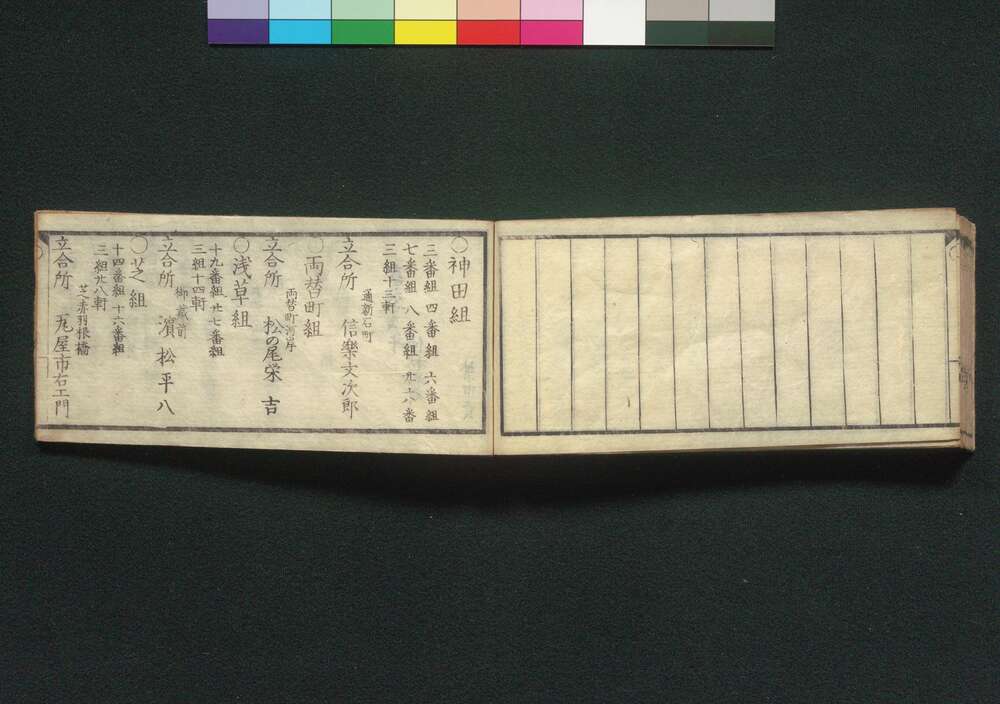 〇神田組
三番組 四番組 六番組
七番組 八番組 廿六番
三組十三軒
通新石町
立合所 信樂文次郎
〇両替町組
両替町河岸
立合所 松の尾栄吉
〇浅草組
十九番組 廿七番組
三組十四軒
御蔵前
立合所 濱松平八
〇芝組
十四番組 十六番組
三組廿八軒
芝赤羽根橋
立合所 丸屋市右エ門